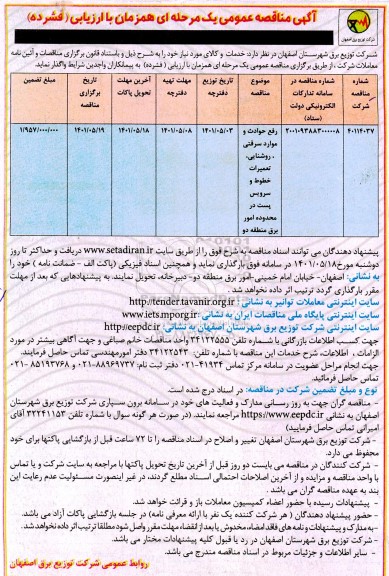 آگهی مناقصه عمومی یک مرحله ای همزمان با ارزیابی (فشرده)
شرکت توزیع برق شهرستان اصفهان در نظر دارد: خدمات و کالای مورد نیاز خود را به شرح ذیل و باستناد قانون برگزاری مناقصات و آئین نامه
معاملات شرکت، از طریق برگزاری مناقصه عمومی یک مرحله ای همزمان با ارزیابی (فشرده) به پیمانکاران واجدین شرایط واگذار نماید.
شماره مناقصه شرکت | شماره مناقصه در سامانه تدارکات الکترونیکی دولت (ستاد) | موضوع مناقصه | تاریخ توزیع دفترچه | مهلت تهیه دفترچه | آخرین مهلت تحویل پاکات | تاریخ برگزاری مناقصه | مبلغ تضمین
۴۰۱۱۴۰۳۷ | ۲۰۰۱۰۹۳۸۸۳۰۰۰۰۰۸ | رفع حوادث و موارد سرقتی، روشنایی، تعمیرات خطوط و سرویس پست در محدوده امور برق منطقه دو | ۱۴۰۱/۰۵/۰۳ | ۱۴۰۱/۰۵/۰۸ | ۱۴۰۱/۰۵/۱۸ | ۱۴۰۱/۰۵/۱۹ | ۱/۹۵۷/۰۰۰/۰۰۰
پیشنهاد دهندگان می توانند اسناد مناقصه به شرح فوق را از طریق سایت www.setadiran.ir دریافت و حداکثر تا روز
دوشنبه مورخ ۱۴۰۱/۰۵/۱۸ در سامانه فوق بارگذاری نماید و همچنین اسناد فیزیکی (پاکت الف - ضمانت نامه) خود را
به نشانی: اصفهان- خیابان امام خمینی-امور برق منطقه دو- دبیرخانه، تحویل نمایند. به پیشنهادهایی که بعد از مهلت
مقرر بارگذاری گردد ترتیب اثر داده نخواهد شد.
سایت اینترنتی معاملات توانیر به نشانی: http://tender.tavanir.org.ir
سایت اینترنتی پایگاه ملی مناقصات ایران به نشانی: www.iets.mporg.ir
سایت اینترنتی شرکت توزیع برق شهرستان اصفهان به نشانی: http://eepdc.ir
جهت کسب اطلاعات بازرگانی با شماره تلفن ۳۴۱۲۲۵۵۵ واحد مناقصات خانم صباغی و جهت آگاهی بیشتر در مورد
الزامات، اطلاعات، شرح خدمات این مناقصه با شماره تلفن: ۳۴۱۲۲۵۴۳ دفتر امورمهندسی تماس حاصل فرمایند.
جهت انجام مراحل عضویت در سامانه مرکز تماس ۴۱۹۳۴-۰۲۱ دفتر ثبت نام: ۸۸۹۶۹۷۳۷-۰۲۱ و ۸۵۱۹۳۷۶۸-۰۲۱
تماس حاصل فرمائید.
نوع و مبلغ تضمین شرکت در مناقصه: در اسناد درج شده است.
- مناقصه گران جهت به روز رسانی مدارک و فعالیت های خود در سامانه برون سپاری شرکت توزیع برق شهرستان
اصفهان به نشانی https://www.eepdc.ir مراجعه نمایند. (در صورت هر گونه سوال با شماره تلفن ۳۲۲۴۱۱۵۳ آقای
امیرانی تماس حاصل فرمایید)
- شرکت توزیع برق شهرستان اصفهان تغییر و اصلاح در اسناد مناقصه را تا ۷۲ ساعت قبل از بازگشایی پاکتها برای خود
محفوظ می دارد.
- شرکت کنندگان در مناقصه می بایست دو روز قبل از آخرین تاریخ تحویل پاکتها با مراجعه به سایت شرکت و یا تماس
با واحد مناقصه و مزایده و از آخرین اصلاحات احتمالی اسناد مطلع گردند، در غیر اینصورت مسئولیت عدم رعایت این
بند به عهده مناقصه گران می باشد.
- پیشنهادات رسیده با حضور اعضاء کمیسیون معاملات باز و قرائت خواهد شد.
- حضور پیشنهاد دهندگان (هر شرکت کننده یک نفر با ارائه معرفی نامه) در جلسه بازگشایی پاکات آزاد می باشد.
- به مدارک و پیشنهادات و نامه های فاقد امضاء، مخدوش یا بعد از انقضاء، مهلت مقرر واصل شود مطلقا ترتیب اثر داده نخواهد شد.
- شرکت توزیع برق شهرستان اصفهان در رد یا قبول کلیه پیشنهادات مختار می باشد.
- سایر اطلاعات و جزئیات مربوط در اسناد مناقصه مندرج می باشد.
روابط عمومی شرکت توزیع برق اصفهان